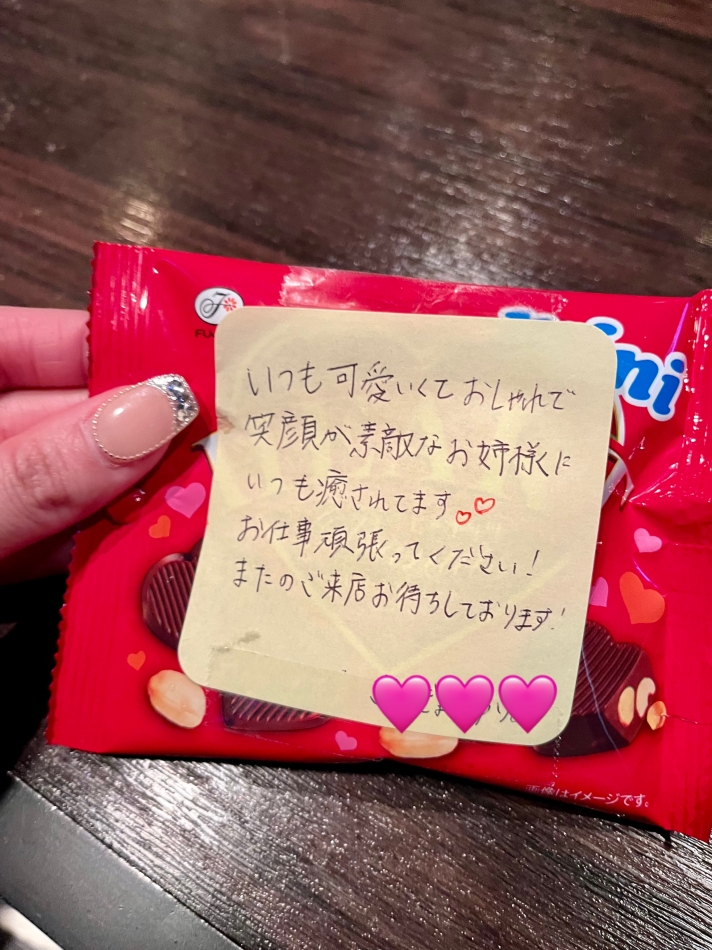 いつも可愛いくておしゃれで
笑顔が素敵なお姉様に
いつも癒されてます
お仕事頑張ってください!
またのご来店お待ちしております!
画像はイメージです。